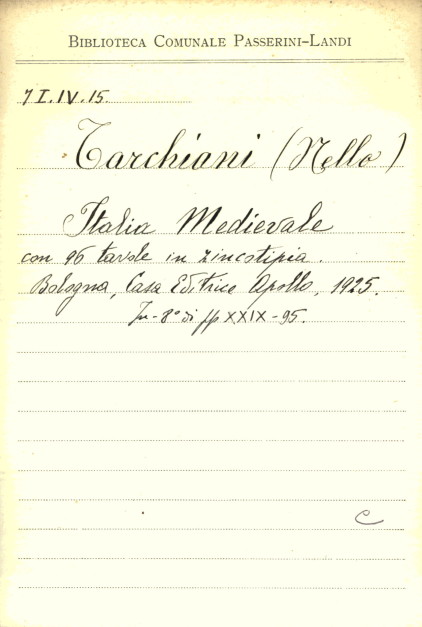 BIBLIOTECA COMUNALE PASSERINI-LANDI
7 I.IV.15.
Tarchiani (Nello)
Italia Medievale
con 96 tavole in zincotipia.
Bologna, Casa Editrice Apollo, 1925.
In-8° di pp XXIX-95.
C